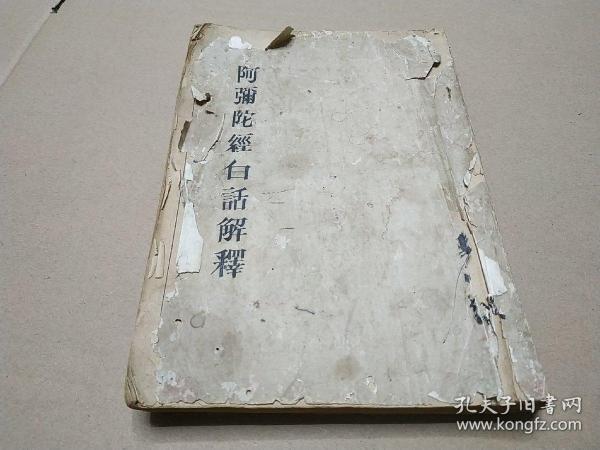 阿彌陀經白話解釋
孔夫子旧書网
www.kongfz.com